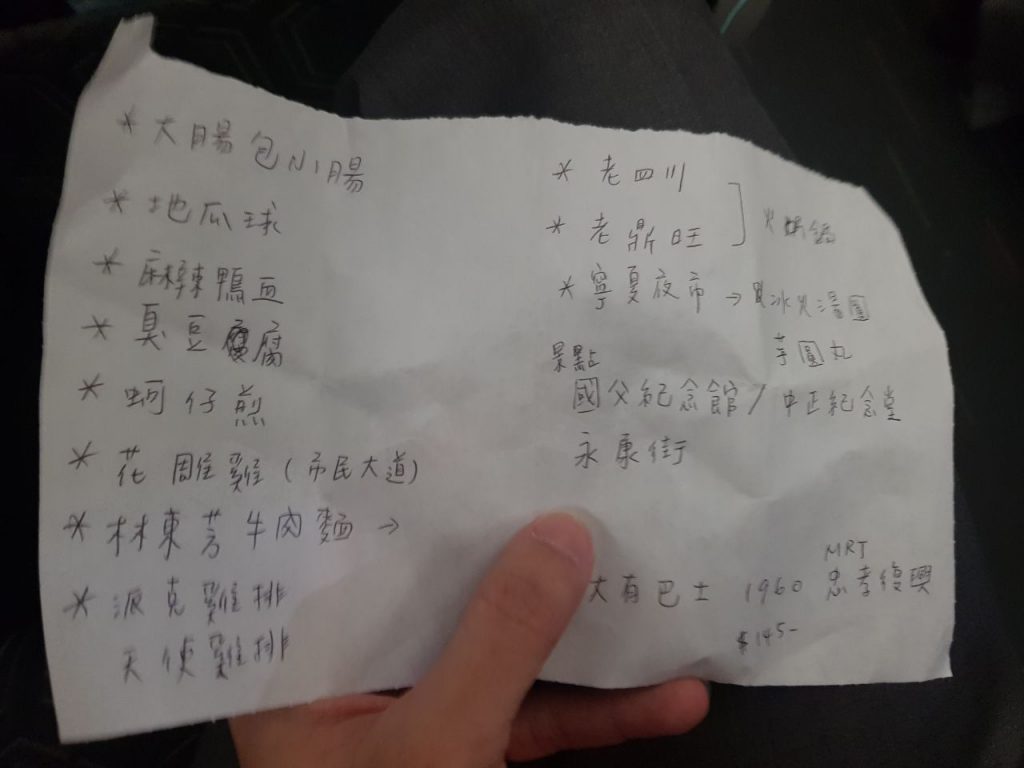 * 大腸包小腸
* 地瓜球
* 麻辣鴨血
* 臭豆腐
* 蚵仔煎
* 花雕雞 (市民大道)
* 林東芳牛肉麵 →
* 派克雞排
天使雞排
* 老四川
* 老鼎旺
火鍋
* 寧夏夜市 → 冰火湯圓
芋圓丸
景點
國父紀念館 / 中正紀念堂
永康街
大有巴士 1960 MRT 忠孝復興
$145-